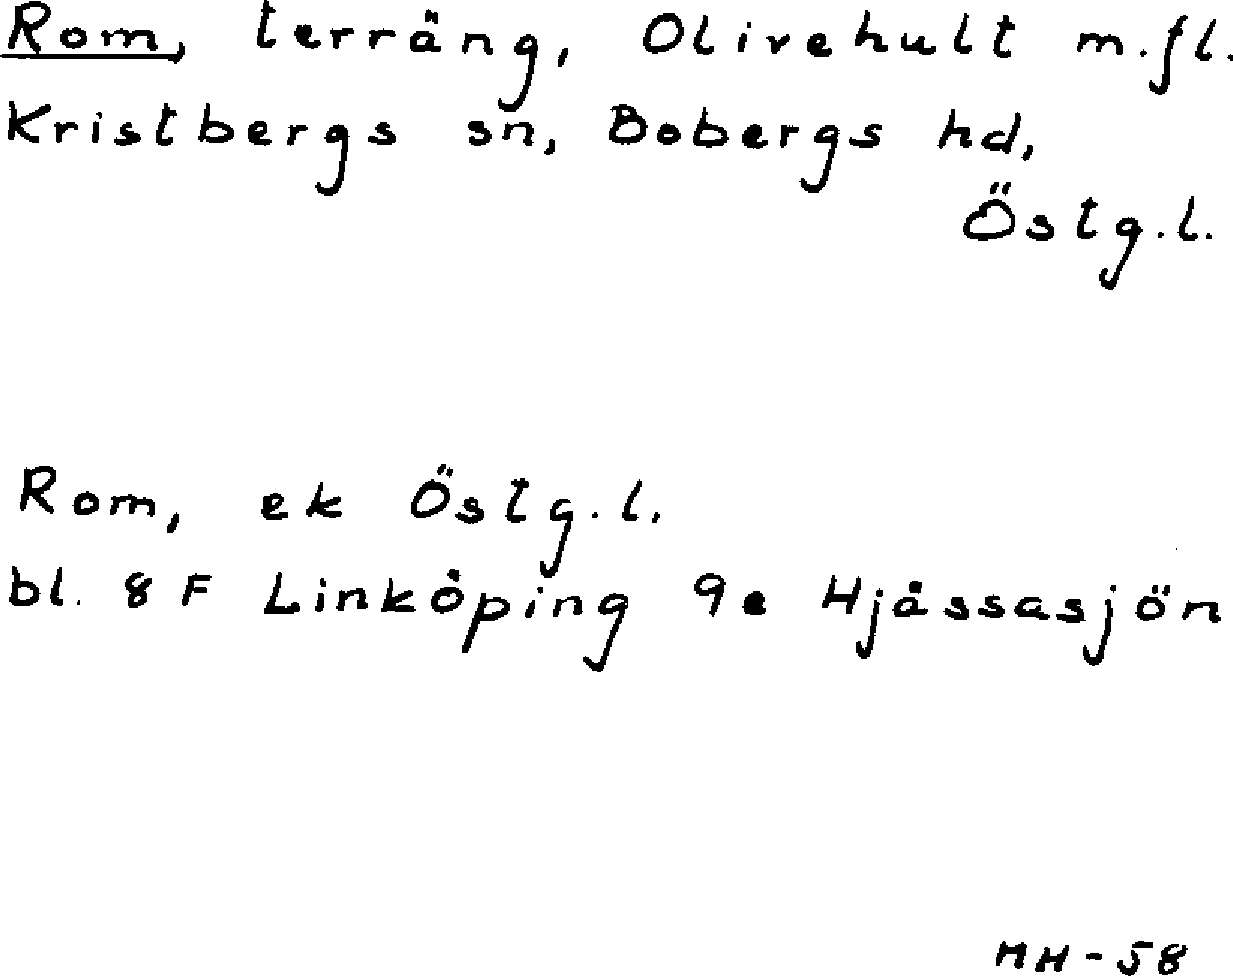 Rom, terräng, Olivehult m.fl.
Kristbergs sn, Bobergs hd,
Östg.l.
Rom, ek Östg.l.
bl. 8 F Linköping 9e Hjässasjön
MH-58